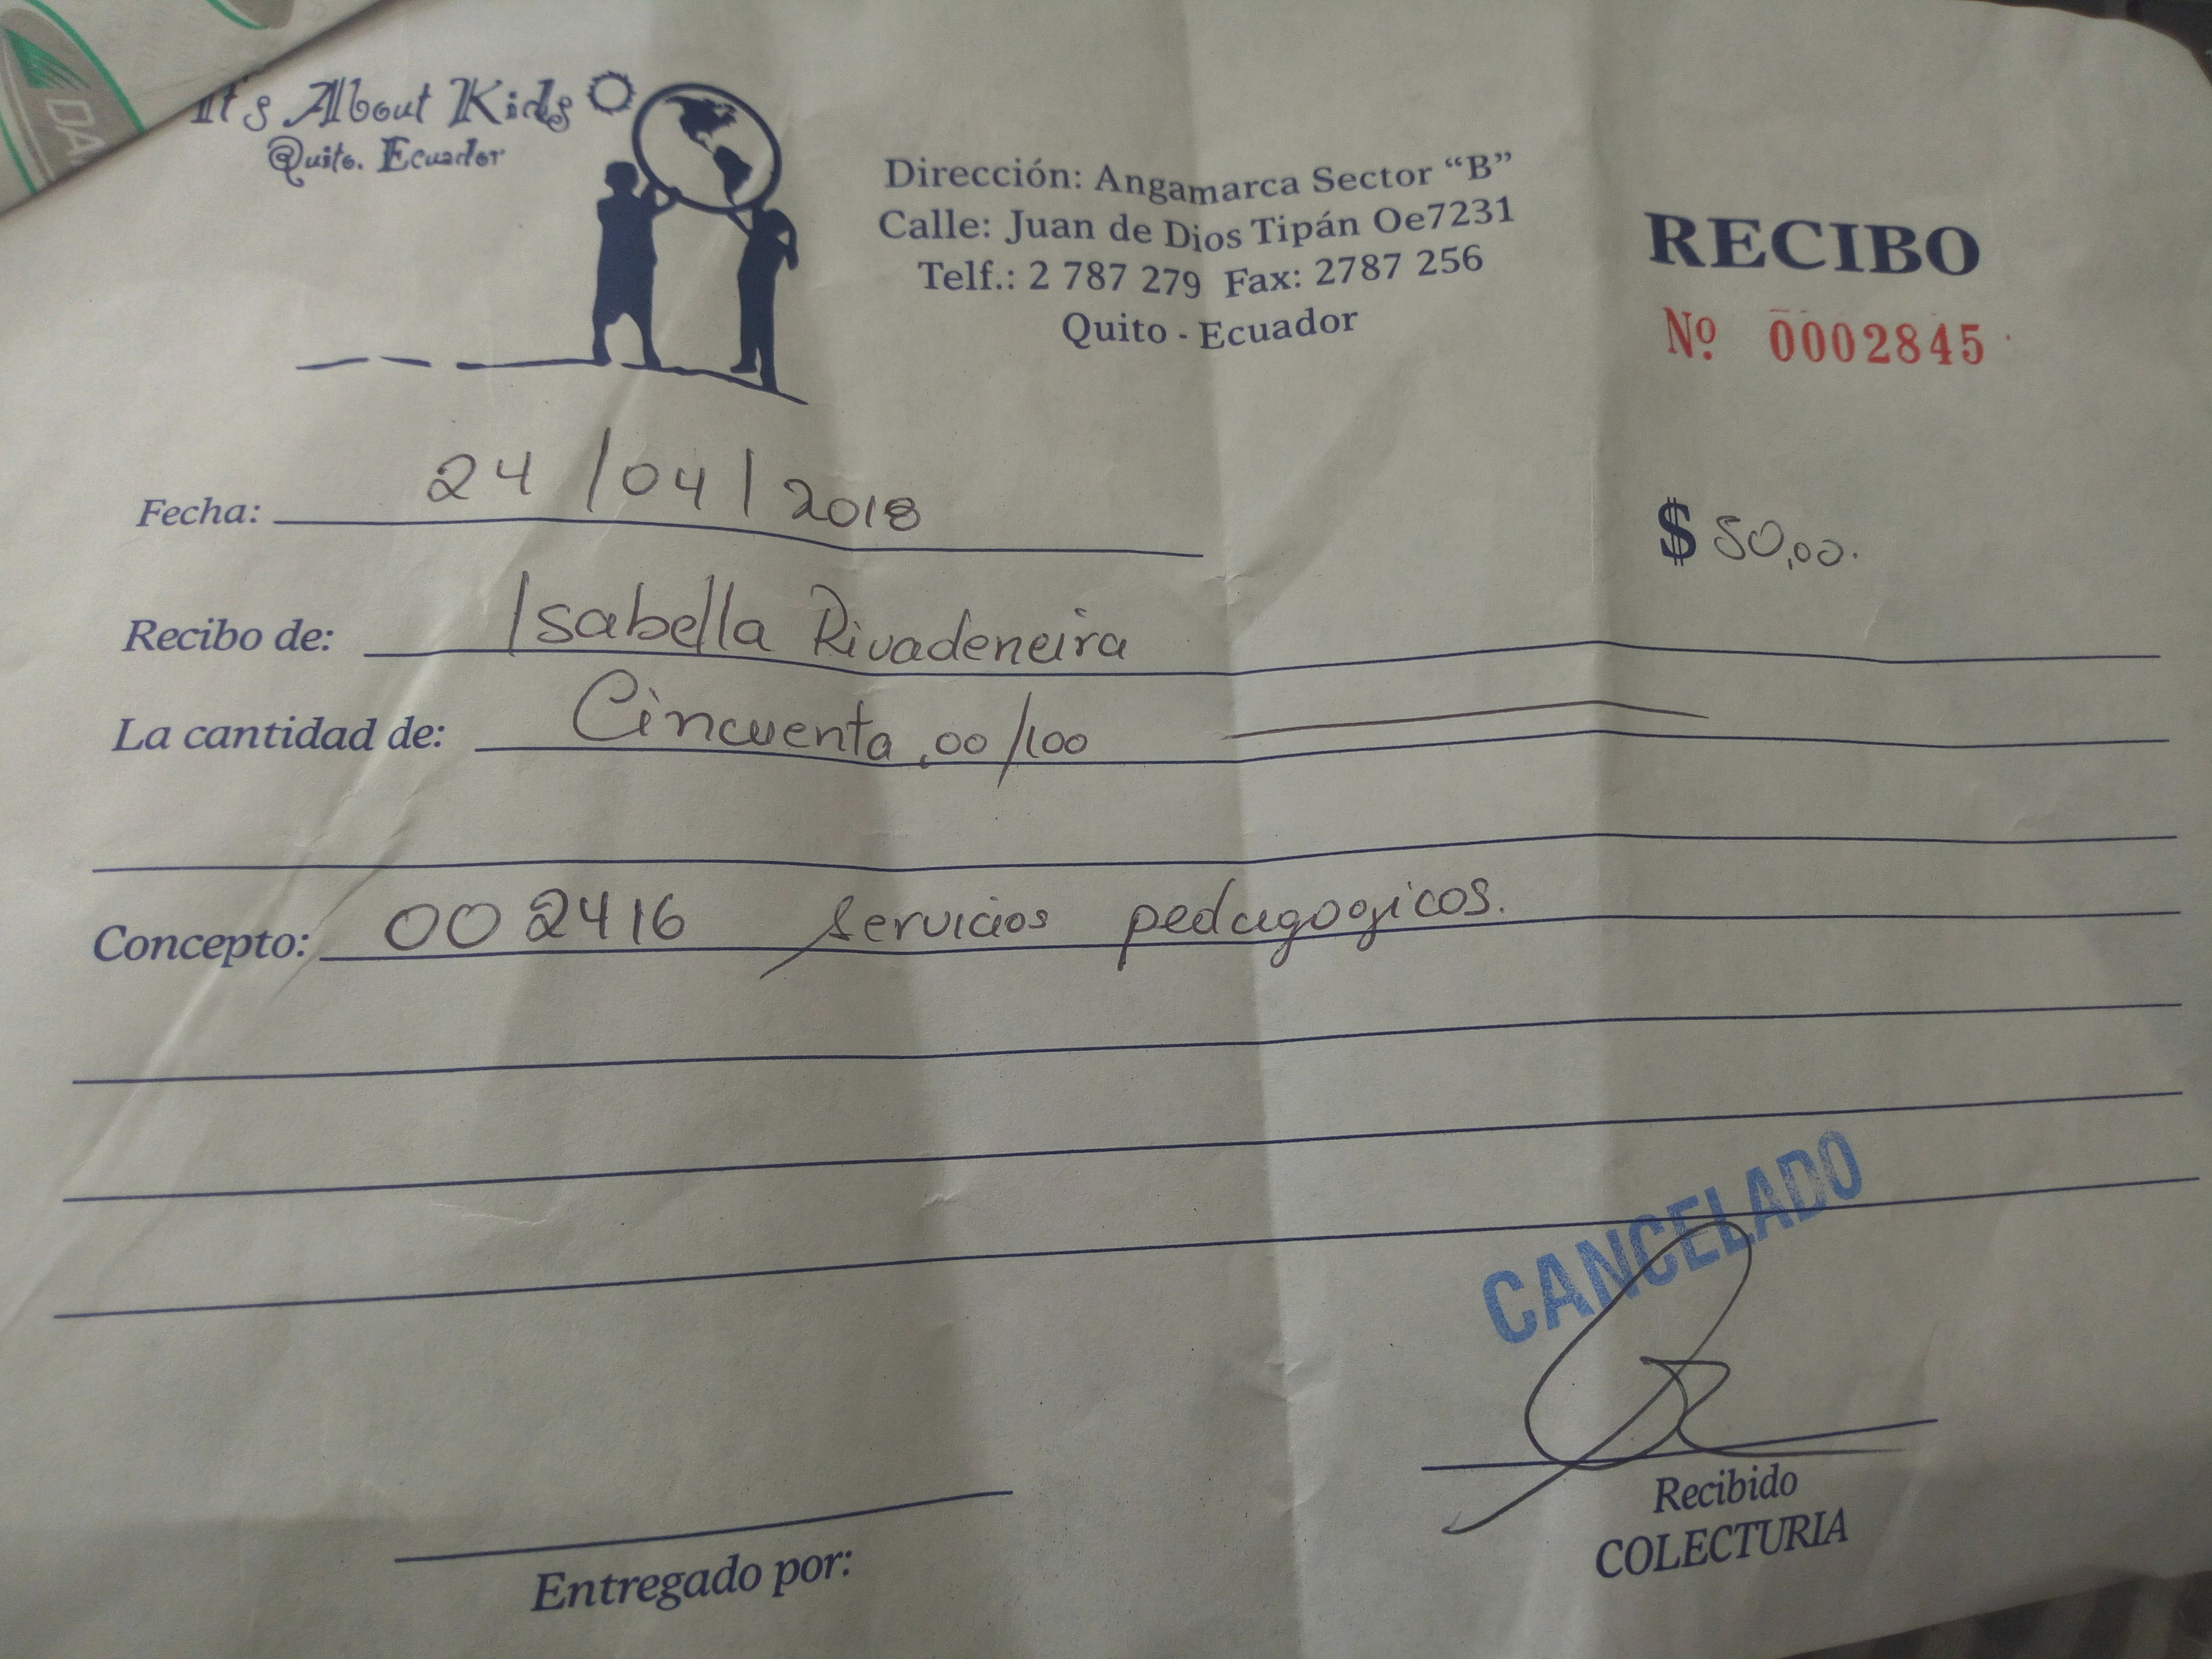 It's About Kids
Quito. Ecuador
Dirección: Angamarca Sector “B”
Calle: Juan de Dios Tipán Oe7231
Telf.: 2 787 279 Fax: 2787 256
Quito - Ecuador
RECIBO
Nº 0002845
Fecha: 24/04/2018
$ 50,00.
Recibo de: Isabella Rivadeneira
La cantidad de: Cincuenta,00/100
Concepto: 002416 servicios pedagogicos.
CANCELADO
Recibido
COLECTURIA
Entregado por: